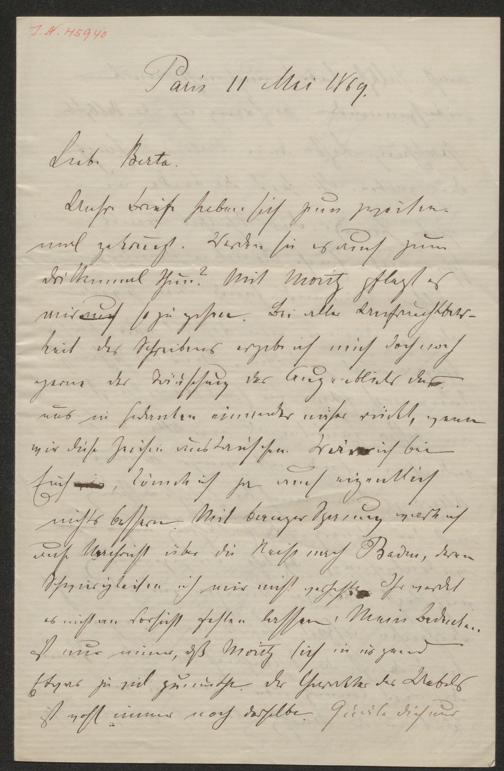 J. N. 45940
Paris 11 Mai 1869.
Liebe Berta.
Unsre Briefe haben sich zum zweiten
mal gekreuzt. Werden sie es auch zum
drittenmal thun? Mit Moritz pflegt es
mir auch so zu gehen. Bei aller Unfruchtbar-
keit des Schreibens ergebe ich mich doch noch
gerne der Täuschung des Augenblicks daß
uns in Gedanken einander näher rückt, wenn
wir diese Zeichen austauschen. Wäre ich bei
Euch, könnte ich ja auch eigentlich
nichts bessern. Mit banger Spannung warte ich
auf Nachricht über die Reise nach Baden, deren
Schwierigkeiten ich mir nicht verhehle. Ihr werdet
es nicht an Vorsicht fehlen lassen. Mein Bedenken
ist nur immer, daß Moritz sich in irgend
Etwas zu viel zumuthe. Der Charakter des Uebels
ist wohl immer noch derselbe. Quäle dich nur